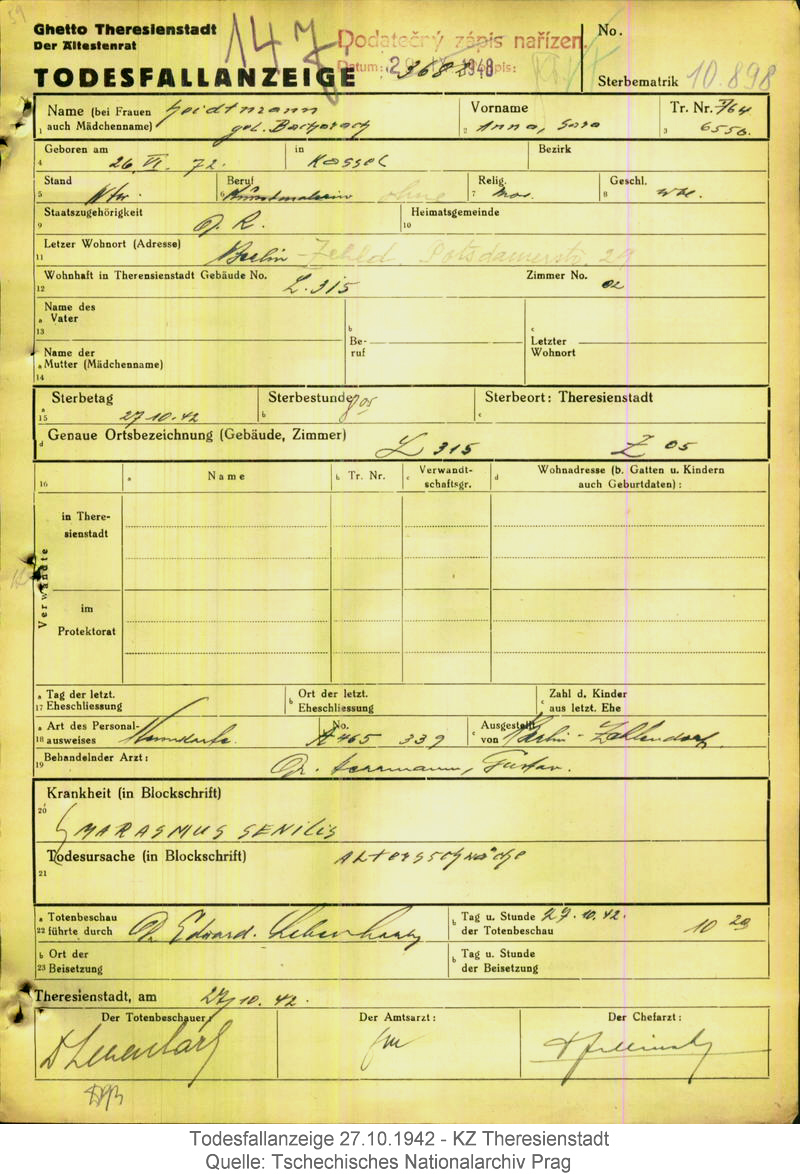 59
Ghetto Theresienstadt
Der Ältestenrat
TODESFALLANZEIGE
147
Dodatečný zápis nařízen.
Datum: 1948
3682
No.
Sterbematrik 10.898
Name (bei Frauen auch Mädchenname) Heidtmann
geb. Bacharach
1
Vorname
2 Anna, Sara
Tr. Nr. I/64
3 6550.
Geboren am
4 26. VI. 72.
in Kassel
Bezirk
Stand
5 Wtw.
Beruf
6 Kunstmalerin ohne
Relig.
7 mos.
Geschl.
8 wbl.
Staatszugehörigkeit
9 D. R.
Heimatsgemeinde
10
Letzer Wohnort (Adresse)
11 Berlin - Zehld. Potsdamerstr. 29
Wohnhaft in Theresienstadt Gebäude No.
12 L. 315
Zimmer No. 02
Name des
a Vater
13
b
Be-
ruf
c
Letzter
Wohnort
Name der
a Mutter (Mädchenname)
14
Sterbetag
a
15 27.10.42
Sterbestunde 8 05
b
Sterbeort: Theresienstadt
c
d Genaue Ortsbezeichnung (Gebäude, Zimmer) L 315 Z 05
16
a Name
b Tr. Nr.
c Verwandt-
schaftsgr.
d Wohnadresse (b. Gatten u. Kindern
auch Geburtdaten) :
Verwandte
in There-
sienstadt
im
Protektorat
a Tag der letzt.
17 Eheschliessung
b Ort der letzt.
Eheschliessung
c Zahl d. Kinder
aus letzt. Ehe
a Art des Personal-
18 ausweises
b No.
A 465 339
c Ausgestellt
von Berlin - Zehlendorf.
Behandelnder Arzt :
19 Dr. Herrmann, Gustav.
Krankheit (in Blockschrift)
20
MARASMUS SENILIS
Todesursache (in Blockschrift) Altersschwäche
21
a Totenbeschau
22 führte durch Dr. Edward.
b Tag u. Stunde 27.10.42.
der Totenbeschau 10 20
b Ort der
23 Beisetzung
b Tag u. Stunde
der Beisetzung
Theresienstadt, am 27/10. 42.
Der Totenbeschauer :
Der Amtsarzt :
Der Chefarzt :
Todesfallanzeige 27.10.1942 - KZ Theresienstadt
Quelle: Tschechisches Nationalarchiv Prag